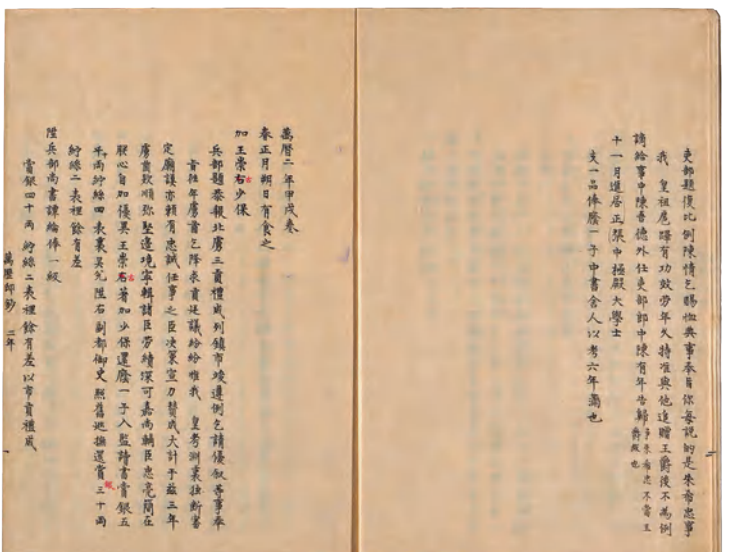 吏部題復比例陳情乞賜恤典事奉旨你每說的是朱希忠事
我 皇祖扈蹕有功效勞年久特准與他追贈王爵後不為例
謫給事中陳吾德外任吏部郎中陳有年告歸 爭朱希忠不當王爵故也
十一月進居正張中極殿大學士
支一品俸廕一子中書舍人以考六年滿也
萬曆二年甲戌春
春正月朔日有食之
加王崇右古少保
兵部題恭報北虜三貢禮成列鎮市竣遵例乞請優叙等事奉
旨往年虜酋乞降求貢是議給給惟我 皇考淵衷独斷
定廟謨亦賴有忠誠任事之臣决策宣力贊成大計于茲三年
虜酋效順弥堅邊境寧輯諸臣勞績深可嘉尚輔臣忠亮簡在
朕心自加優異王崇右古著加少保還廕一子入監讀書賞銀五
十兩紵絲四表裏吳兌陞右副都御史照舊巡撫還賞銀三十兩
紵絲二表裡餘有差
陞兵部尚書譚綸俸一級
賞銀四十兩紵絲二表裡餘有差以市貢禮成
萬曆邸鈔 二年